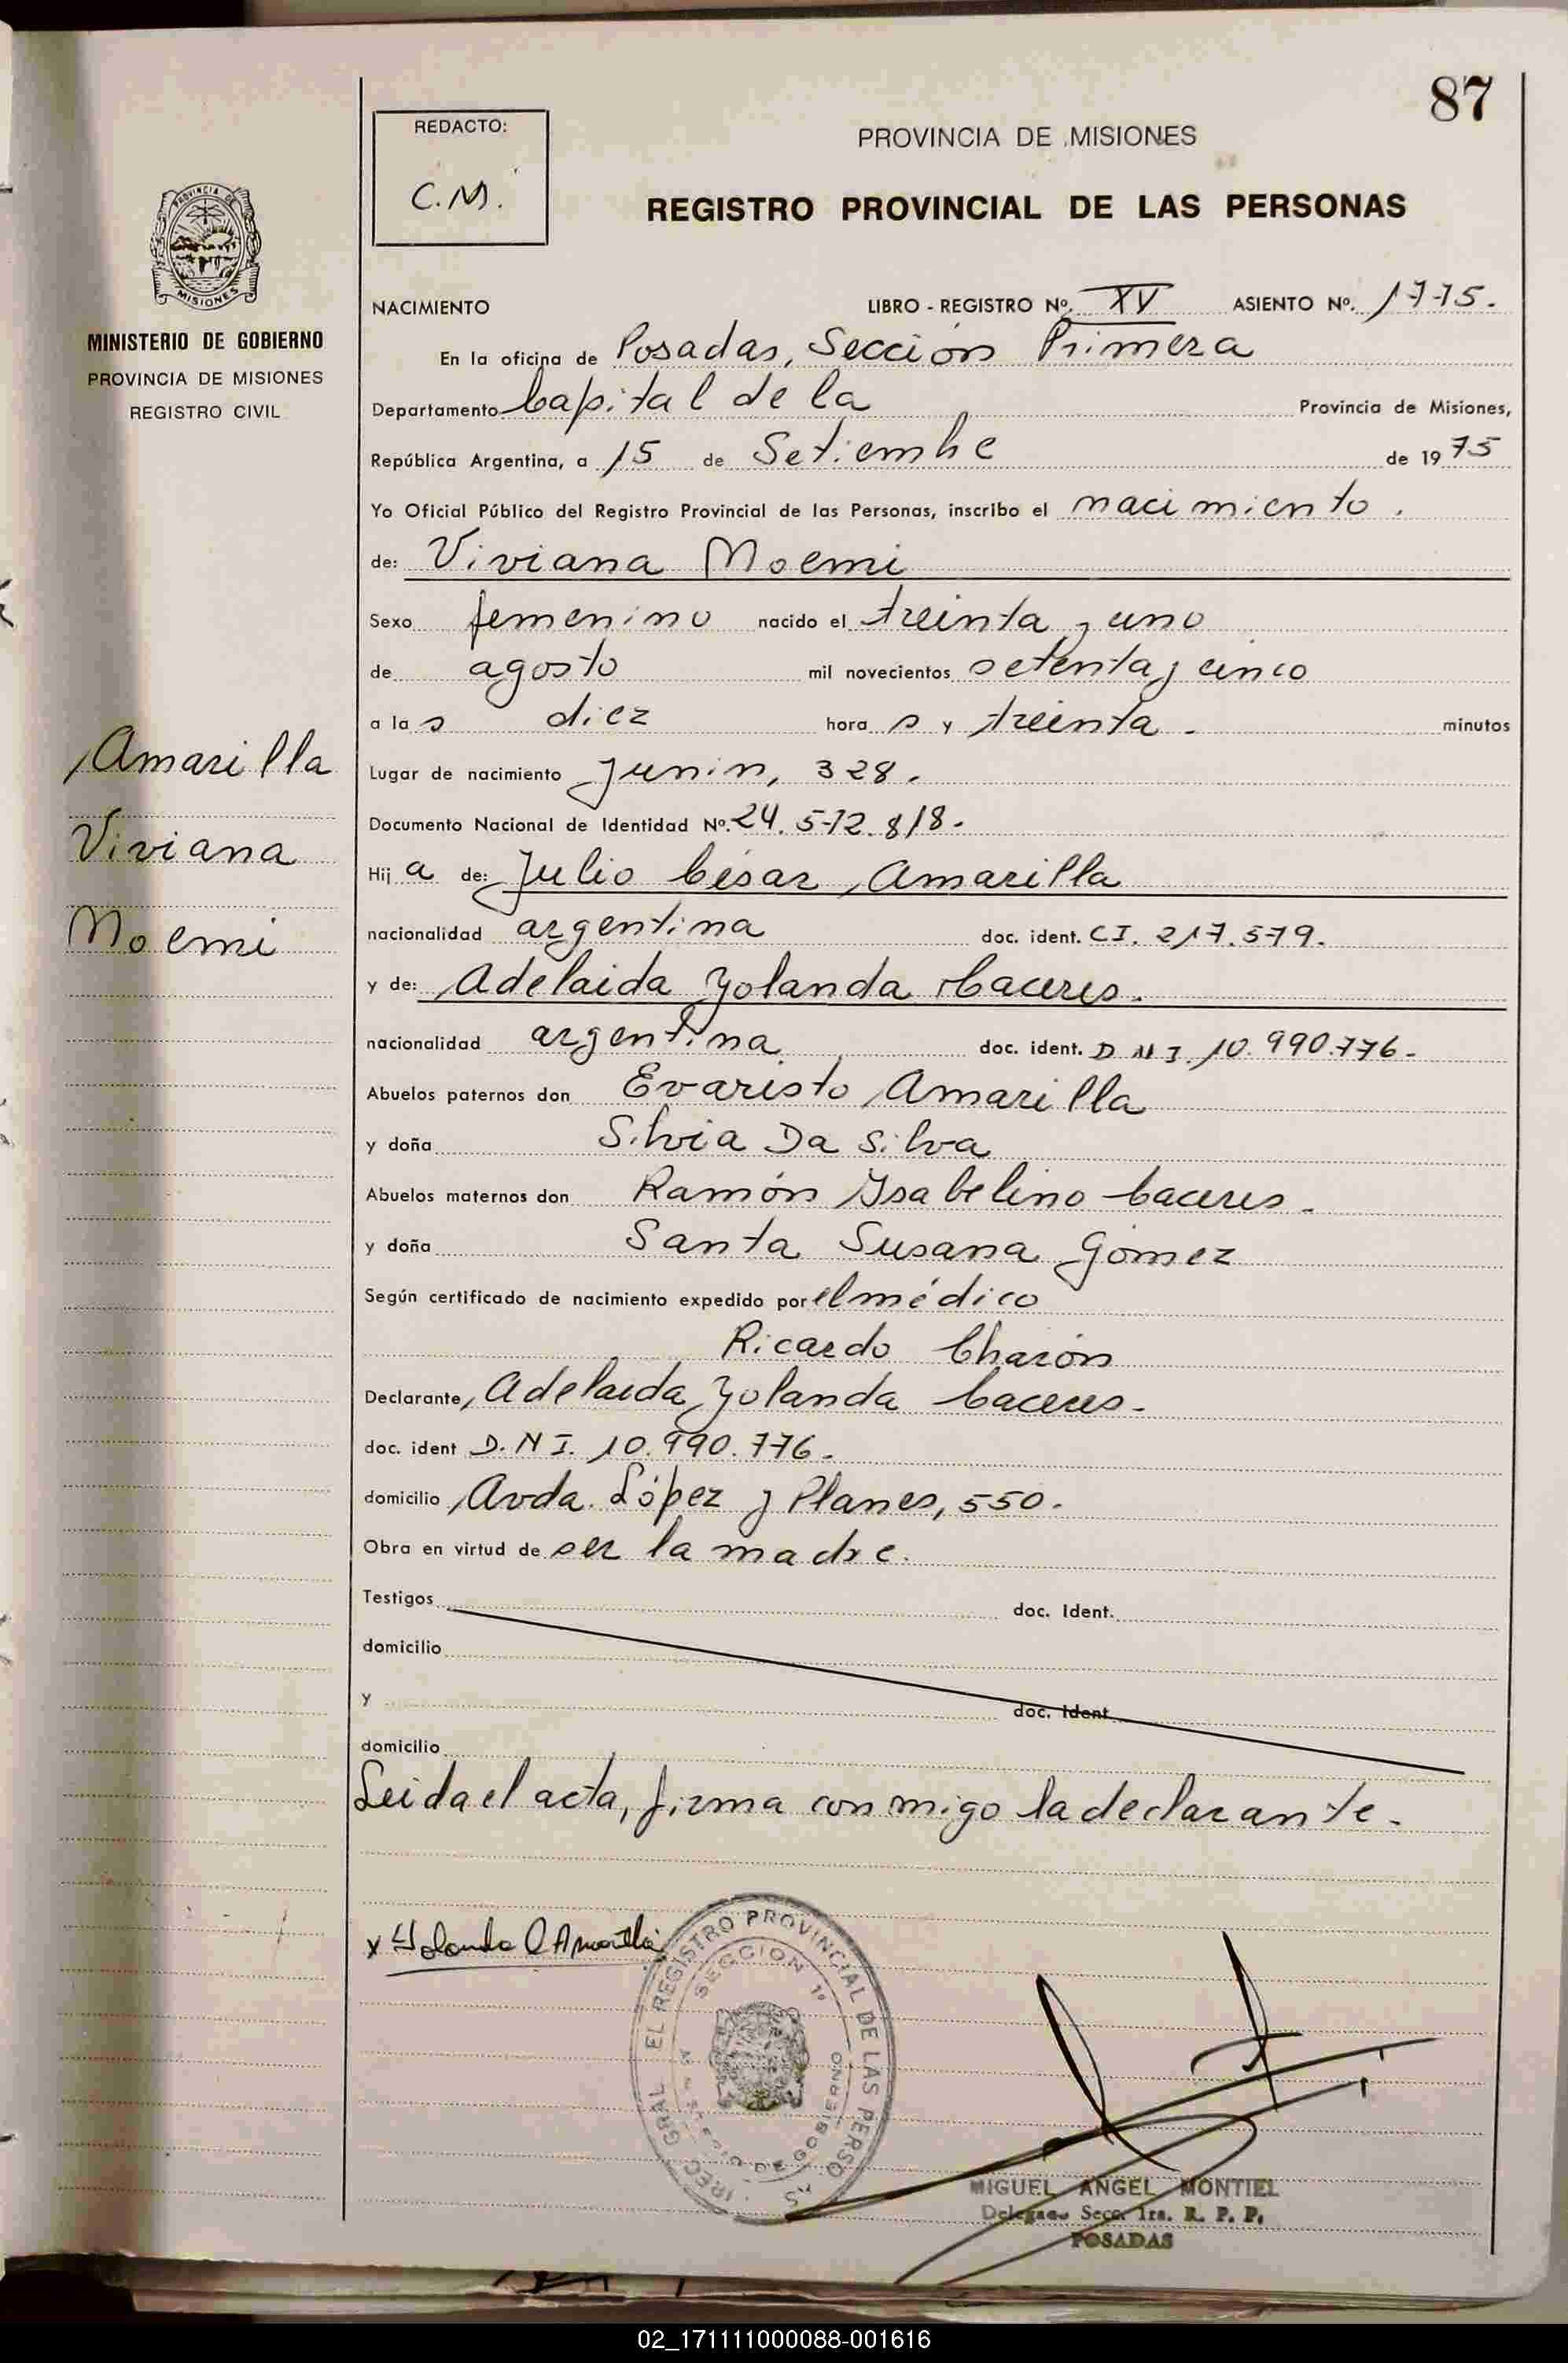 87
REDACTO:
C.M.
PROVINCIA DE MISIONES
REGISTRO PROVINCIAL DE LAS PERSONAS
PROVINCIA DE
MISIONES
MINISTERIO DE GOBIERNO
PROVINCIA DE MISIONES
REGISTRO CIVIL
NACIMIENTO LIBRO - REGISTRO Nº. XV ASIENTO Nº. 1775.
En la oficina de Posadas, Sección Primera
Departamento Capital de la Provincia de Misiones,
República Argentina, a 15 de Setiembre de 1975
Yo Oficial Público del Registro Provincial de las Personas, inscribo el nacimiento.
de: Viviana Noemi
Sexo femenino nacido el treinta y uno
de agosto mil novecientos setenta y cinco
a las diez horas y treinta. minutos
Amarilla
Viviana
Noemi
Lugar de nacimiento Junin, 328.
Documento Nacional de Identidad Nº. 24.572.818.
Hija de: Julio César Amarilla
nacionalidad argentina doc. ident. CI. 217.579.
y de: Adelaida Yolanda Caceres.
nacionalidad argentina doc. ident. DNI. 10.990.776.
Abuelos paternos don Evaristo Amarilla
y doña Silvia Da Silva
Abuelos maternos don Ramón Ysabelino Caceres.
y doña Santa Susana Gómez
Según certificado de nacimiento expedido por el médico
Ricardo Charón
Declarante, Adelaida Yolanda Caceres.
doc. ident D.N I. 10.990.776.
domicilio Avda. López y Planes, 550.
Obra en virtud de ser la madre.
Testigos doc. Ident.
domicilio
y doc. Ident
domicilio
Leida el acta, firma conmigo la declarante.
x Yolanda C Amarilla
GRAL EL REGISTRO PROVINCIAL DE LAS PERSO
SECCION 1º
DE GOBIERNO
MIGUEL ANGEL MONTIEL
Delegado Secc. 1ra. R. P. P.
POSADAS
02_171111000088-001616